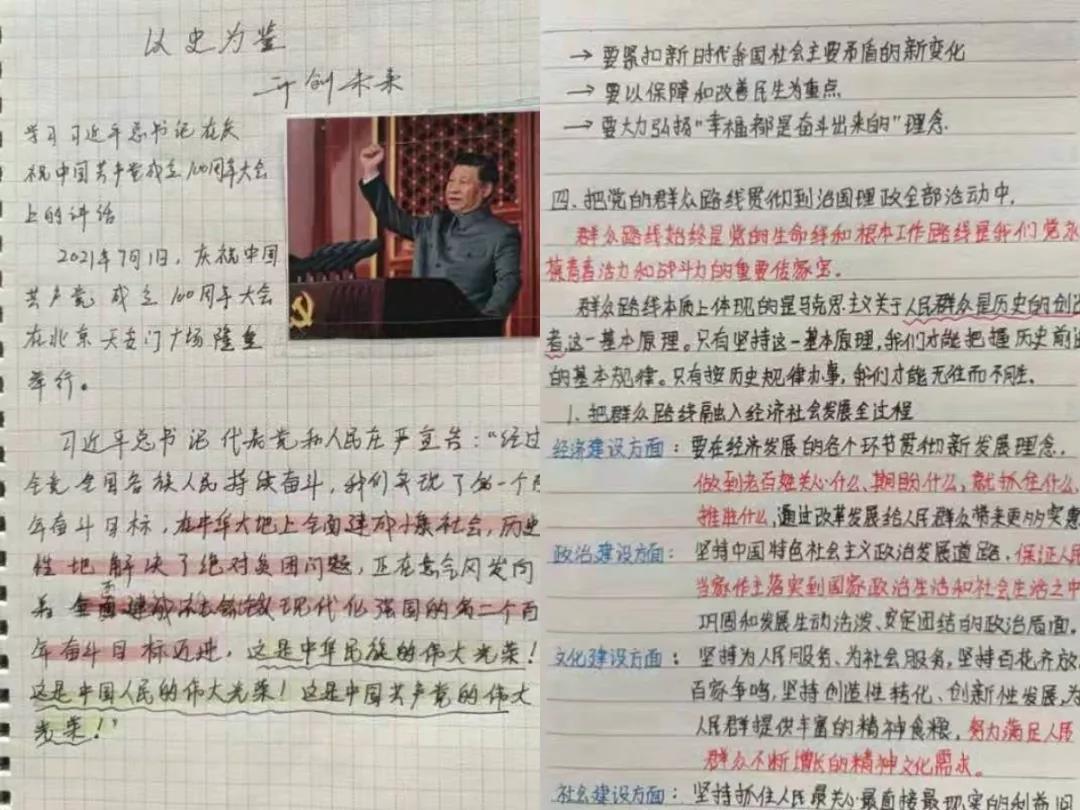 以史为鉴
开创未来
学习习近平总书记在庆
祝中国共产党成立100周年大会
上的讲话
2021年7月1日，庆祝中国
共产党成立100周年大会
在北京天安门广场隆重
举行。
习近平总书记代表党和人民庄严宣告：“经过
全党全国各族人民持续奋斗，我们实现了第一个百
年奋斗目标，在中华大地上全面建成小康社会，历史
性地解决了绝对贫困问题，正在意气风发向
着全面建成 现代化强国的第二个百
年奋斗目标迈进。这是中华民族的伟大光荣！
这是中国人民的伟大光荣！这是中国共产党的伟大
光荣！”
→要紧扣新时代我国社会主要矛盾的新变化
→要以保障和改善民生为重点
→要大力弘扬“幸福都是奋斗出来的”理念.
四、把党的群众路线贯彻到治国理政全部活动中.
群众路线始终是党的生命线和根本工作路线是我们党永
葆青春活力和战斗力的重要传家宝。
群众路线本质上体现的是马克思主义关于人民群众是历史的创造
者,这一基本原理。只有坚持这一基本原理，我们才能把握历史前进
的基本规律。只有按历史规律办事，我们才能无往而不胜。
1.把群众路线融入经济社会发展全过程
经济建设方面：要在经济发展的各个环节贯彻新发展理念.
做到老百姓关心什么、期盼什么，就抓住什么、
推进什么，通过改革发展给人民群众带来更多实惠
政治建设方面：坚持中国特色社会主义政治发展道路，保证人民
当家作主落实到国家政治生活和社会生活之中
巩固和发展生动活泼、安定团结的政治局面。
文化建设方面：坚持为人民服务、为社会服务，坚持百花齐放、
百家争鸣，坚持创造性转化、创新性发展，为
人民群提供丰富的精神食粮，努力满足人民
群众不断增长的精神文化需求。
社会建设方面：坚持抓住人民最关心最直接最现实的利益问